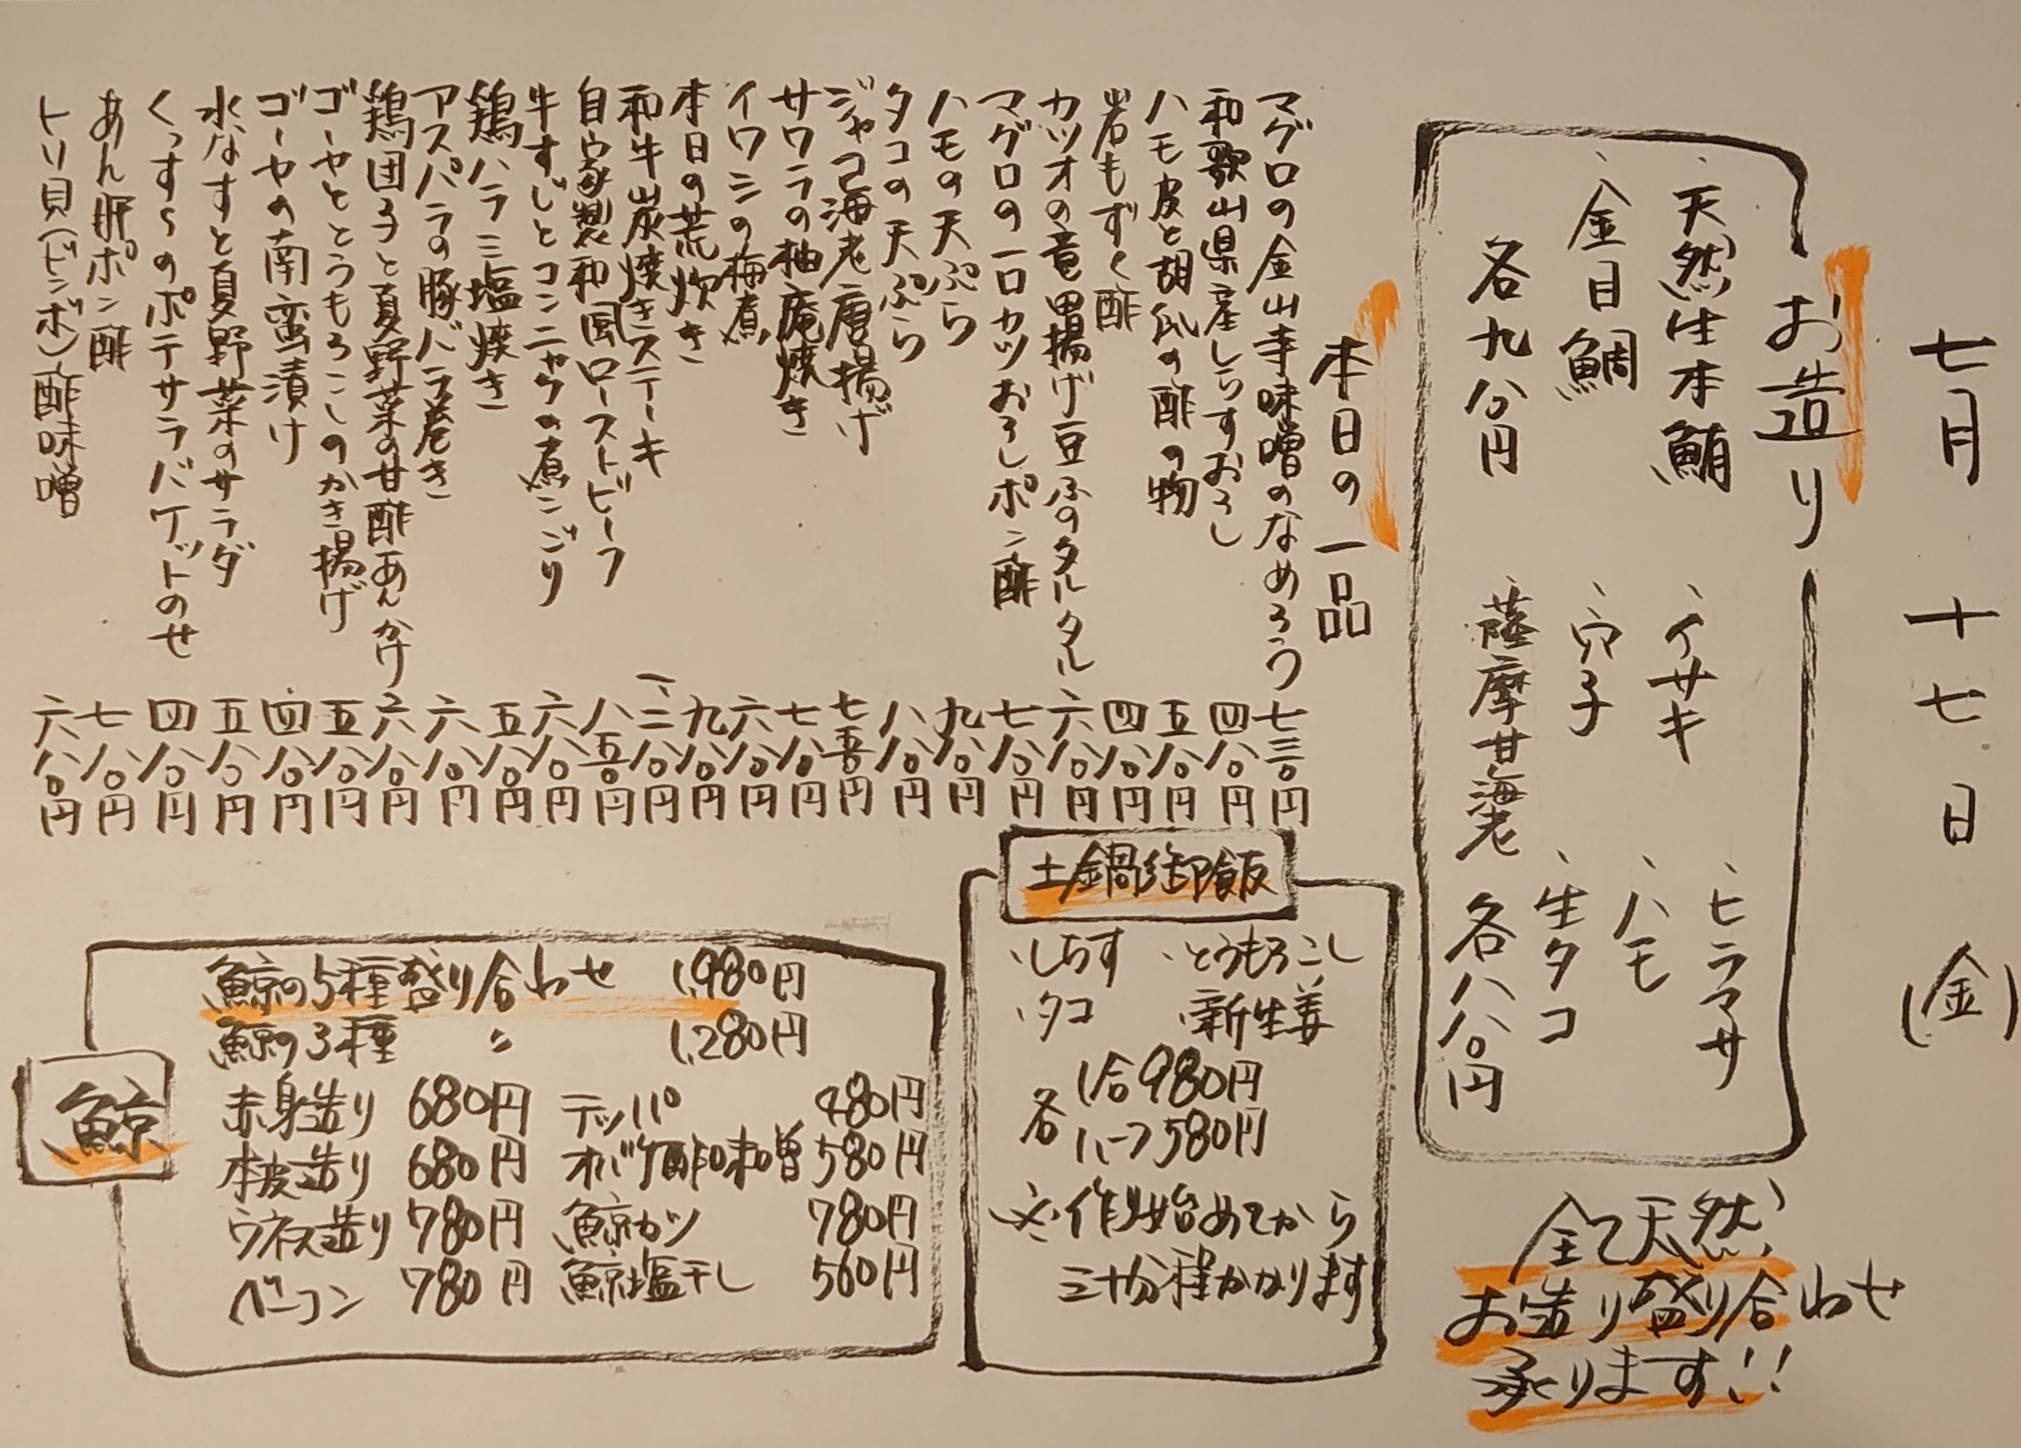 七月十七日(金)
お造り
、天然生本鮪
、イサキ
、ヒラマサ
、金目鯛
、穴子
、ハモ
、生タコ
各九八〇円
薩摩甘海老
各八八〇円
全て天然、
お造り盛り合わせ
承ります!!
本日の一品
マグロの金山寺味噌のなめろう 七三〇円
和歌山県産しらすおろし 四八〇円
ハモ皮と胡瓜の酢の物 五八〇円
岩もずく酢 四八〇円
カツオの竜田揚げ豆ふのタルタル 六八〇円
マグロの一口カツおろしポン酢 七八〇円
ハモの天ぷら 九八〇円
タコの天ぷら 八八〇円
ジャコ海老唐揚げ 七五〇円
サワラの柚庵焼き 七八〇円
イワシの梅煮 六八〇円
本日の荒炊き 九八〇円
和牛炭焼きステーキ 一、二八〇円
自家製和風ローストビーフ 八五〇円
牛すじとコンニャクの煮こごり 六八〇円
鶏ハラミ塩焼き 五八〇円
アスパラの豚バラ巻き 六八〇円
鶏団子と夏野菜の甘酢あんかけ 六八〇円
ゴーヤととうもろこしのかき揚げ 五八〇円
ゴーヤの南蛮漬け 四八〇円
水なすと夏野菜のサラダ 五八〇円
くっすーのポテサラバケットのせ 四八〇円
あん肝ポン酢 七八〇円
トリ貝(ドンボ)酢味噌 六八〇円
土鍋御飯
、しらす 、とうもろこし
、タコ 、新生姜
各 1合980円
ハーフ580円
※作り始めてから
三十分程かかります
鯨
鯨の5種盛り合わせ 1,980円
鯨の3種 〃 1,280円
赤身造り 680円 テッパ 480円
本皮造り 680円 オバケ酢味噌 580円
ウネス造り 780円 鯨カツ 780円
ベーコン 780円 鯨塩干し 560円